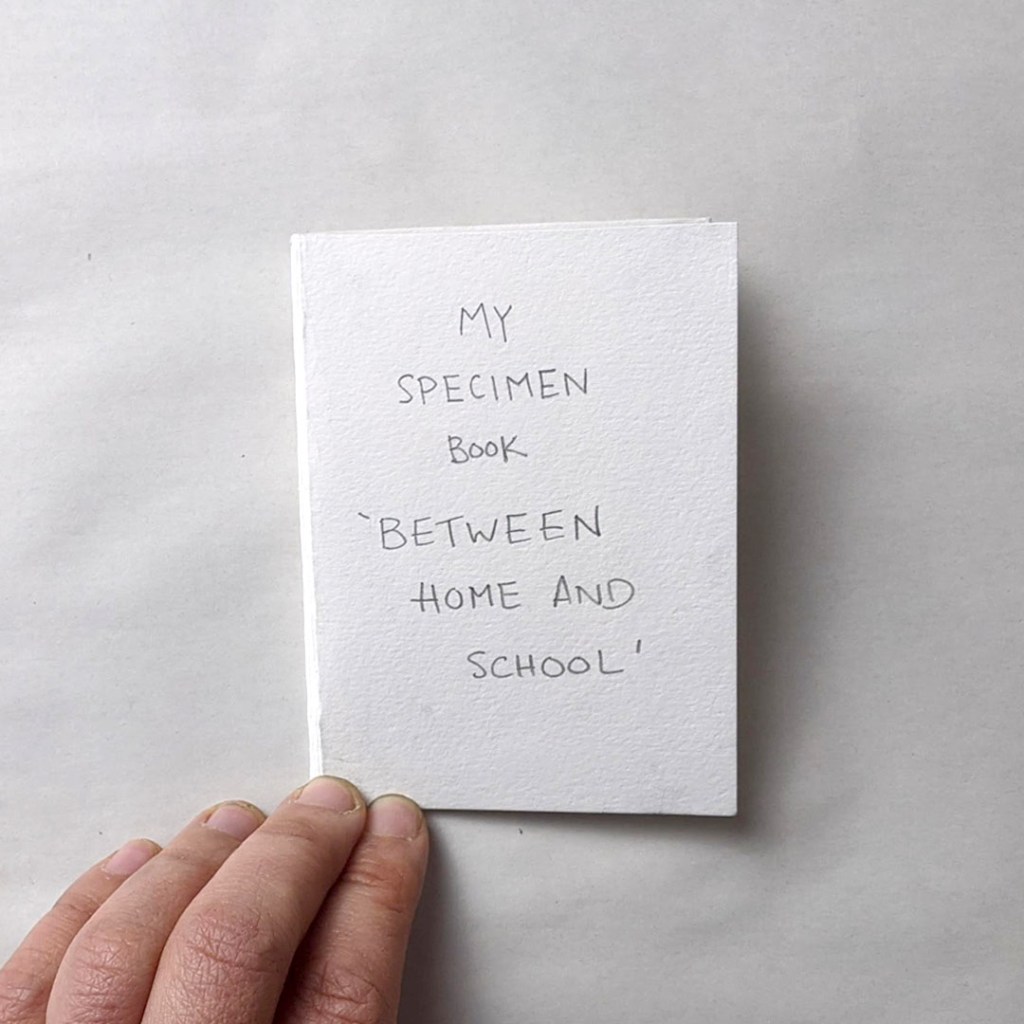 MY
SPECIMEN
BOOK
`BETWEEN
HOME AND
SCHOOL'